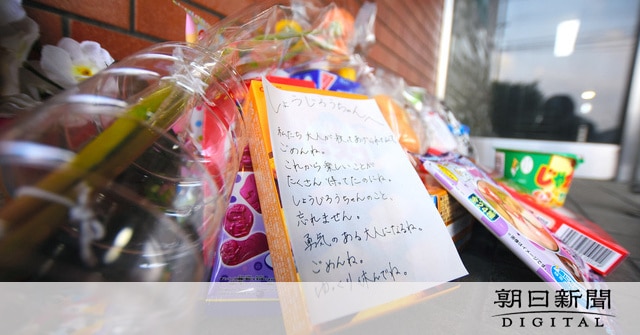 しょうじろうちゃんへ
私たち大人が救ってあげられなくて
ごめんね。
これから楽しいことが
たくさん待ってたのにね。
しょうじろうちゃんのこと、
忘れません。
勇気のある大人になるね。
ごめんね。
ゆっくり休んでね。
朝日新聞
DIGITAL